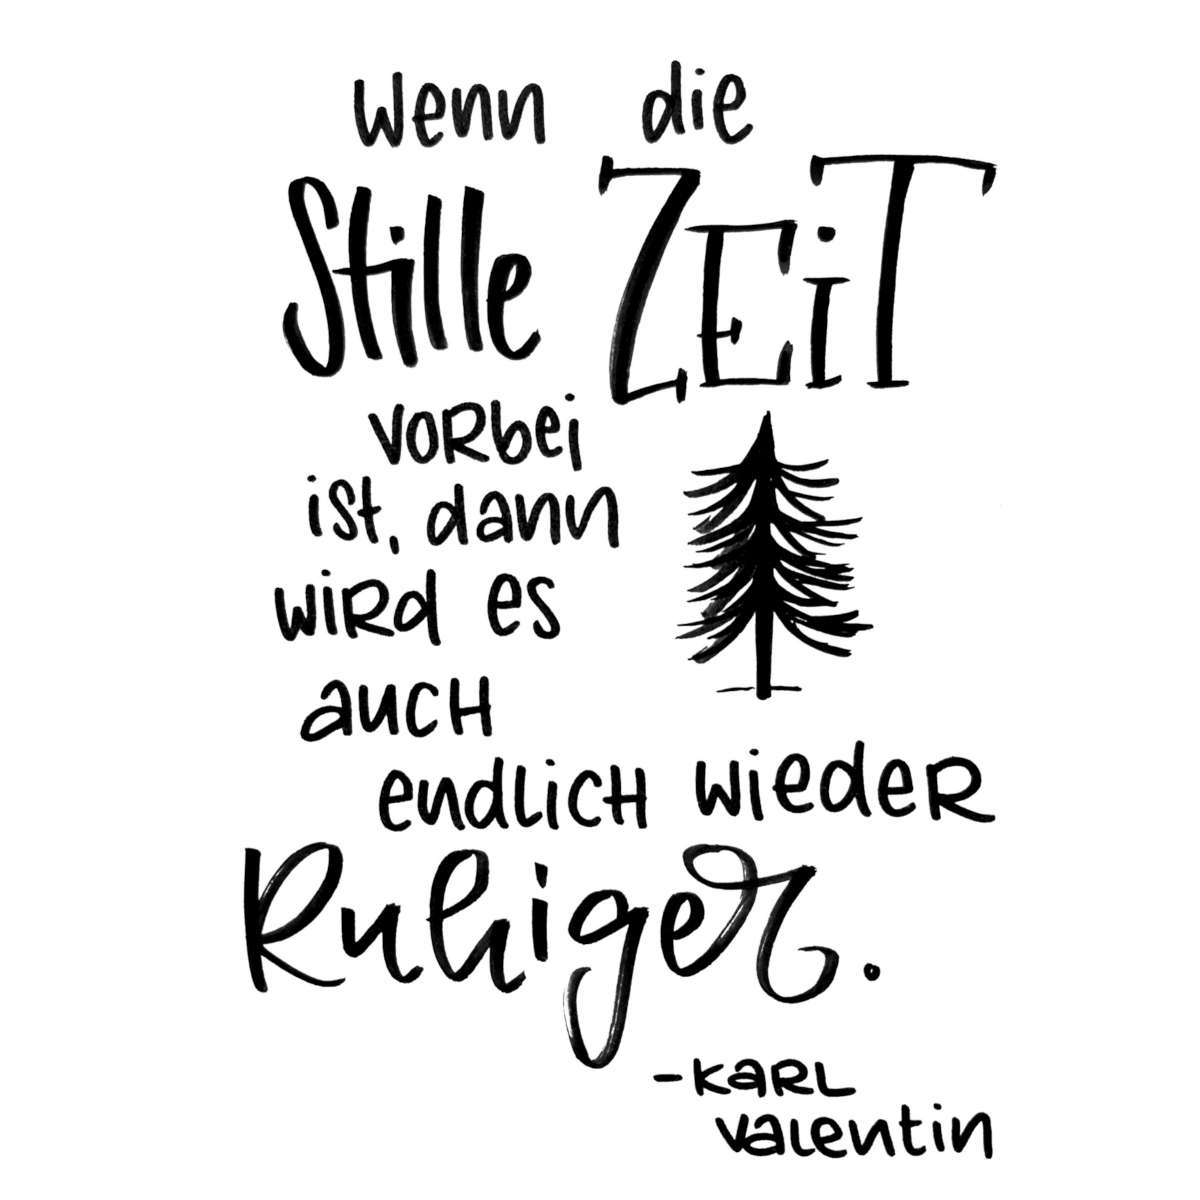 wenn die
Stille ZEiT
vorbei
ist, dann
wird es
auch
endlich wieder
Ruhiger.
- Karl
Valentin